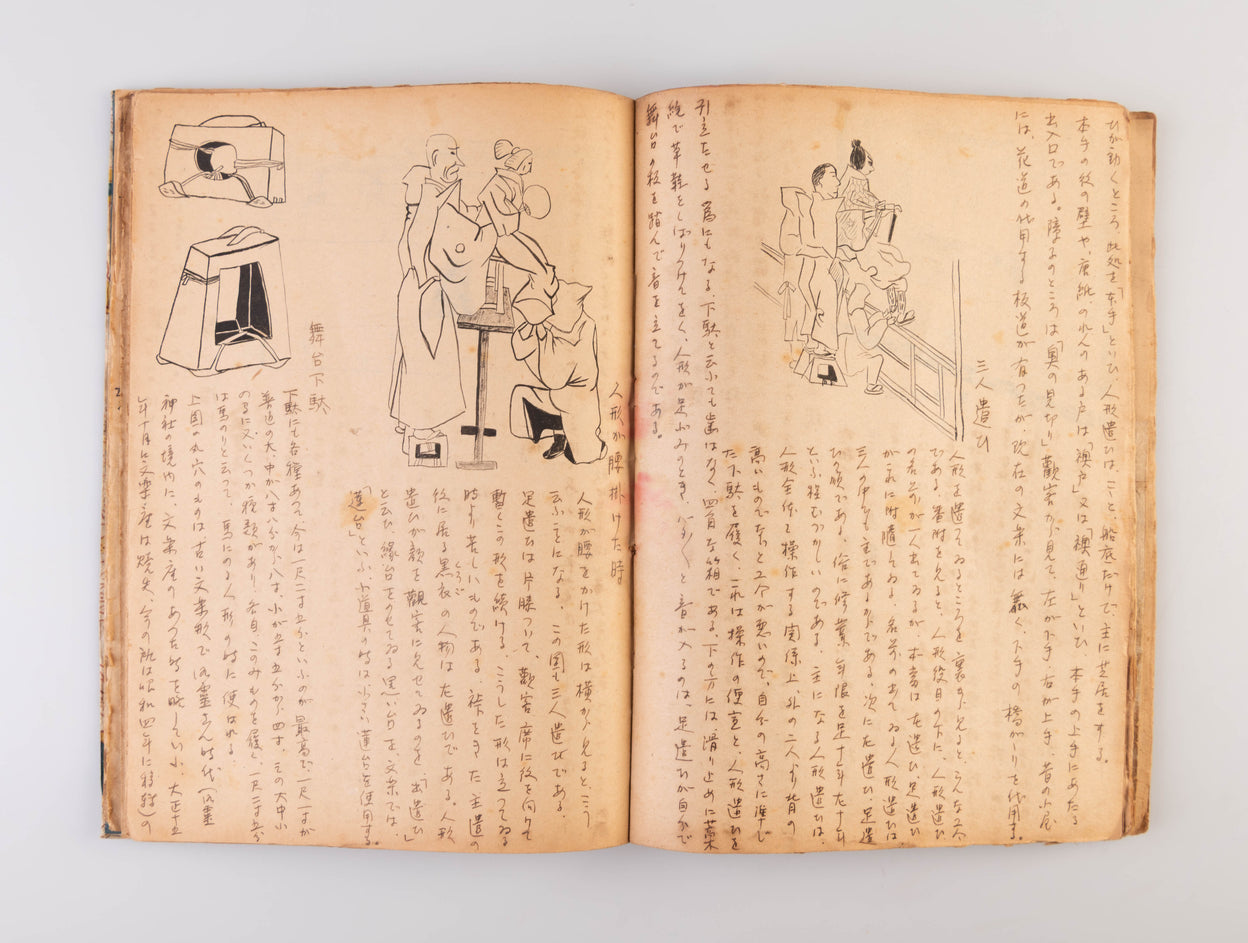 ひが動くところ、此処を「本手」といひ、人形遣ひは、こゝと船底だけで、主に芝居をする。
本手の後の壁や、唐紙、のれんのある戸は「襖戸」又は「襖通り」といひ、本手の上手にあたる
出入口である。障子のところは「奥の見切り」観客から見て、左が下手、右が上手、昔の小屋
には、花道の代用する板道が有つたが、現在の文楽には無く、下手の橋がゝりを代用する。
三人遣ひ
人形を遣つてゐるところを裏から見ると、こんな工合
である。番附を見ると、人形役目の下に、人形遣ひ
の名前が一人出てゐるが、本当は左遣ひ、足遣ひ
がこれに附随してゐる、名前の出てゐる人形遣ひは
三人の中でも主であるからである。次に左遣ひ、足遣
ひの順である。俗に修業年限を足十年左十年
といふ程むつかしいのである。主になる人形遣ひは、
人形全体を操作する関係上、外の二人より背の
高いものでないと工合が悪いので、自分の高さに準じ
た下駄を履く、これは操作の便宜と、人形遣ひを
引立たせる為にもなる、下駄と云ふても歯はなく、四角な箱である。下の方には滑り止めに藁
縄で草鞋をしばりつけておく、人形が足ぶみのとき、 と音が入るのは、足遣ひが自分で
舞台の板を踏んで音を立てるのである。
人形が腰掛けた時
人形が腰をかけた形は横から見ると、こう
云ふことになる、この図も三人遣ひである。
足遣ひは片膝ついて、観客席に後を向けて
暫くこの形を続ける。こうした形は立つてゐる
時より苦しいものである。裃をきた主遣の
後に居る黒衣の人物は左遣ひである。人形
くろご
遣ひが顔を観客に見せてゐるのを「出遣ひ」
と云ひ、縁台をのせてゐる黒い台を、文楽では、
「蓮台」といふ、小道具の時は小さい蓮台を使用する。
舞台下駄
下駄にも各種あつて、今は一尺二寸五分といふのが最高で、一尺一寸が
普通の大、中が八寸八分から八寸、小が五寸五分から四寸、その大中小
のうに又いくつか種類があり、各自、このみものを履く、一尺二寸五分
は馬のりと云つて、馬にのる人形の時に使はれる。
上図の丸穴のものは古い文楽形で 時代
神社の境内に、文楽座のあつた時を略してい小、大正十五
年十一月に文楽座は焼失、今の所は昭和四年に移転の
2.